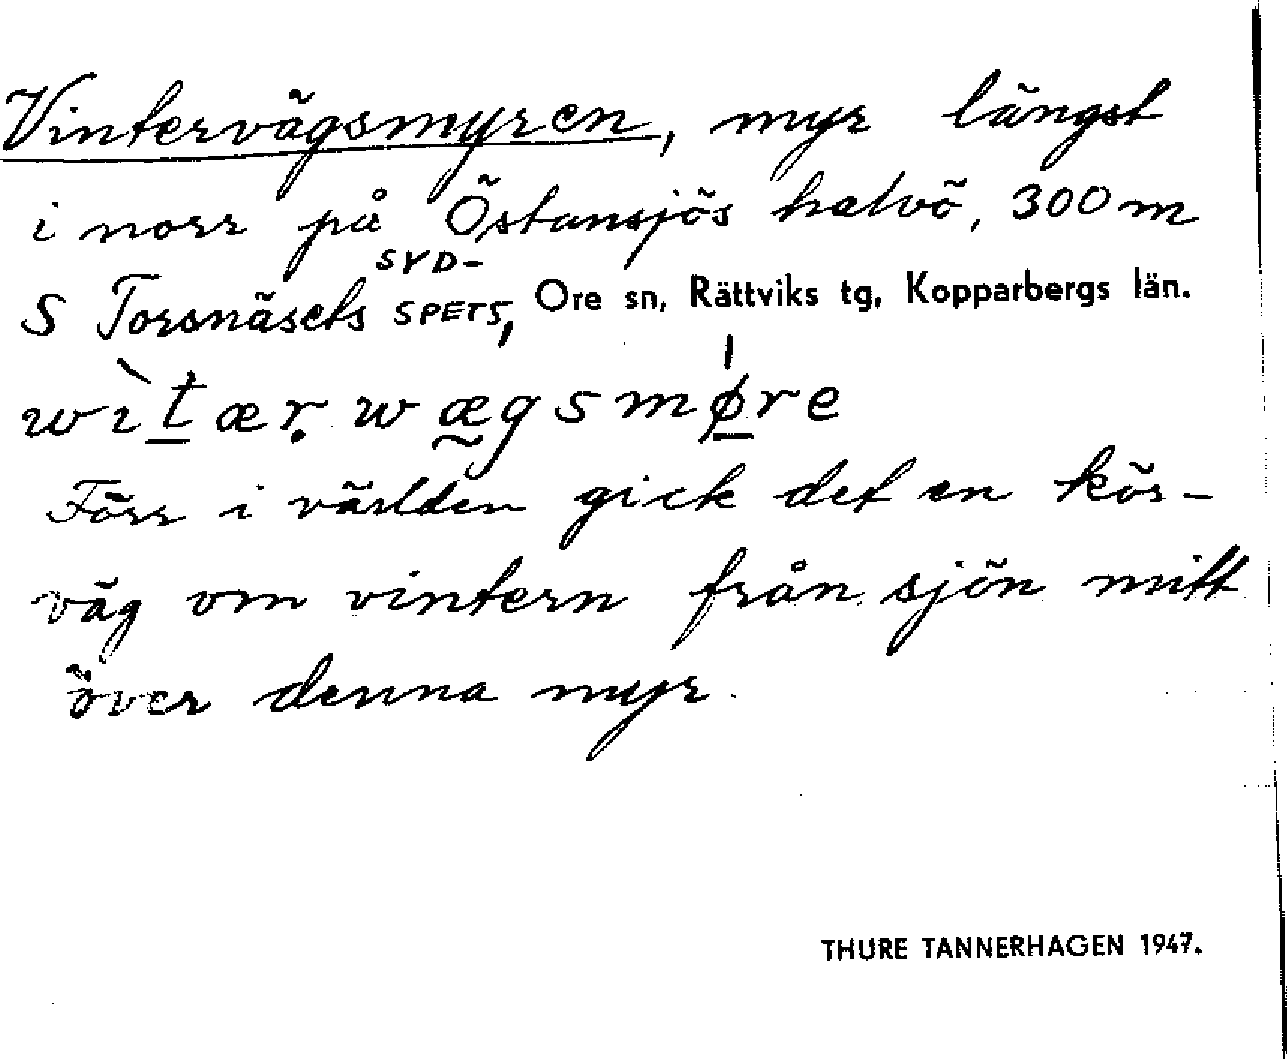 Vintervägsmyren, myr längst
i norr på Östansjös halvö, 300 m
S Torsnäsets SYD-
SPETS, Ore sn, Rättviks tg, Kopparbergs län.
wìṯæṛwæ̰gsmǿ̱re
Förr i världen gick det en kör-
väg om vintern från sjön mitt
över denna myr.
THURE TANNERHAGEN 1947.